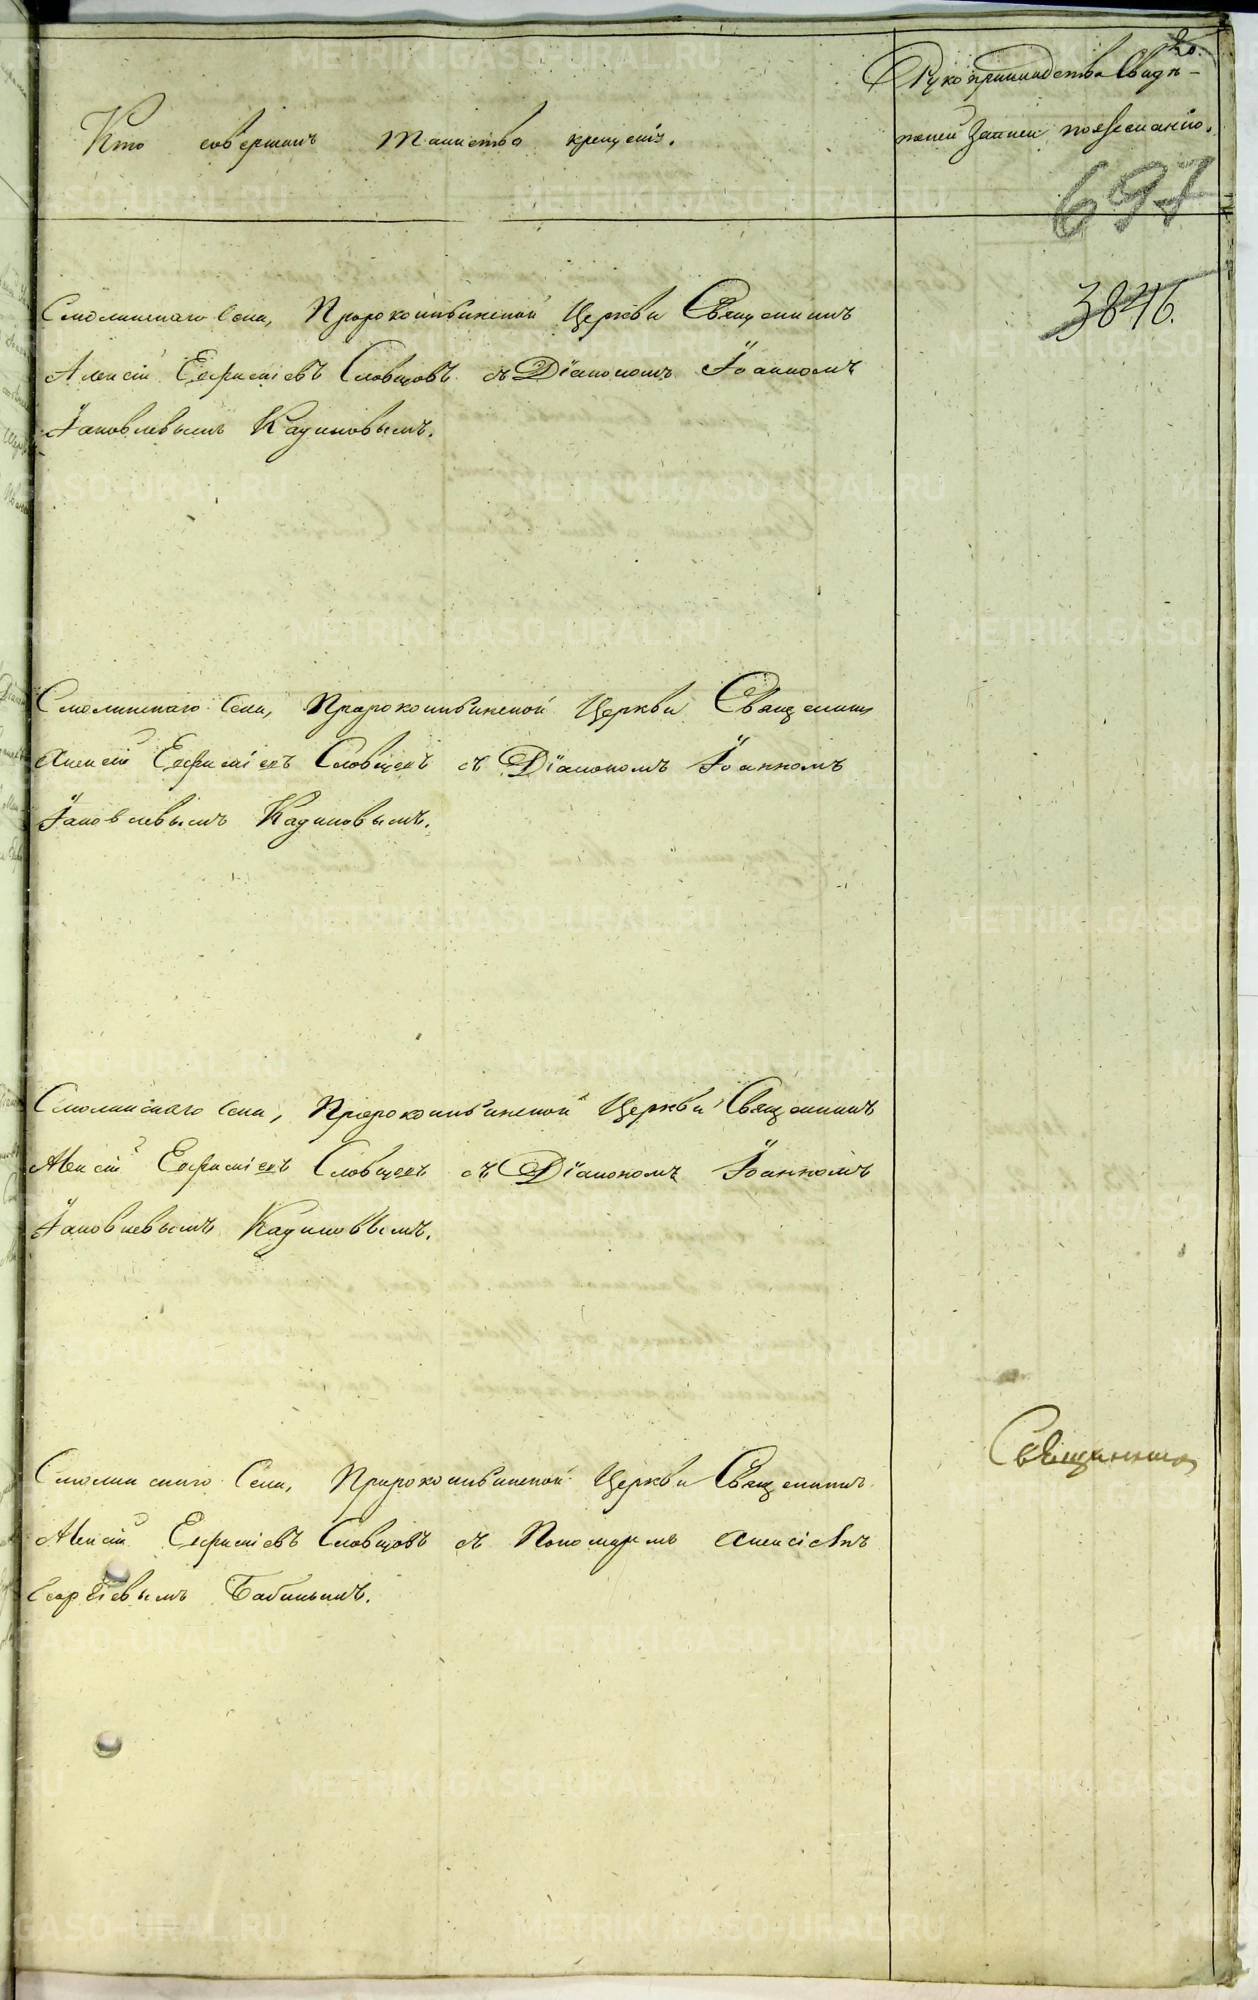 Кто совершалъ таинство крещенія.
Рукоприкладства Свидѣ-
телей Записи по желанію.
697
3846.
Смолинскаго Села, Пророкоильинской Церкви Священникъ
Алексій Евфиміевъ Словцовъ съ Діакономъ Іоанномъ
Іаковлевымъ Кадиковымъ.
Смолинскаго Села, Пророкоильинской Церкви Священникъ
Алексій Евфиміевъ Словцевъ съ Діакономъ Іоанномъ
Іаковлевымъ Кадиковымъ.
Смолинскаго Села, Пророкоильинской Церкви Священникъ
Алексій Евфиміевъ Словцевъ съ Діакономъ Іоанномъ
Іаковлевымъ Кадиковымъ.
Священникъ
Смолинскаго Села, Пророкоильинской Церкви Священникъ
Алексій Евфиміевъ Словцовъ съ Пономаремъ Алексіемъ
Сергіевымъ Бабинымъ.